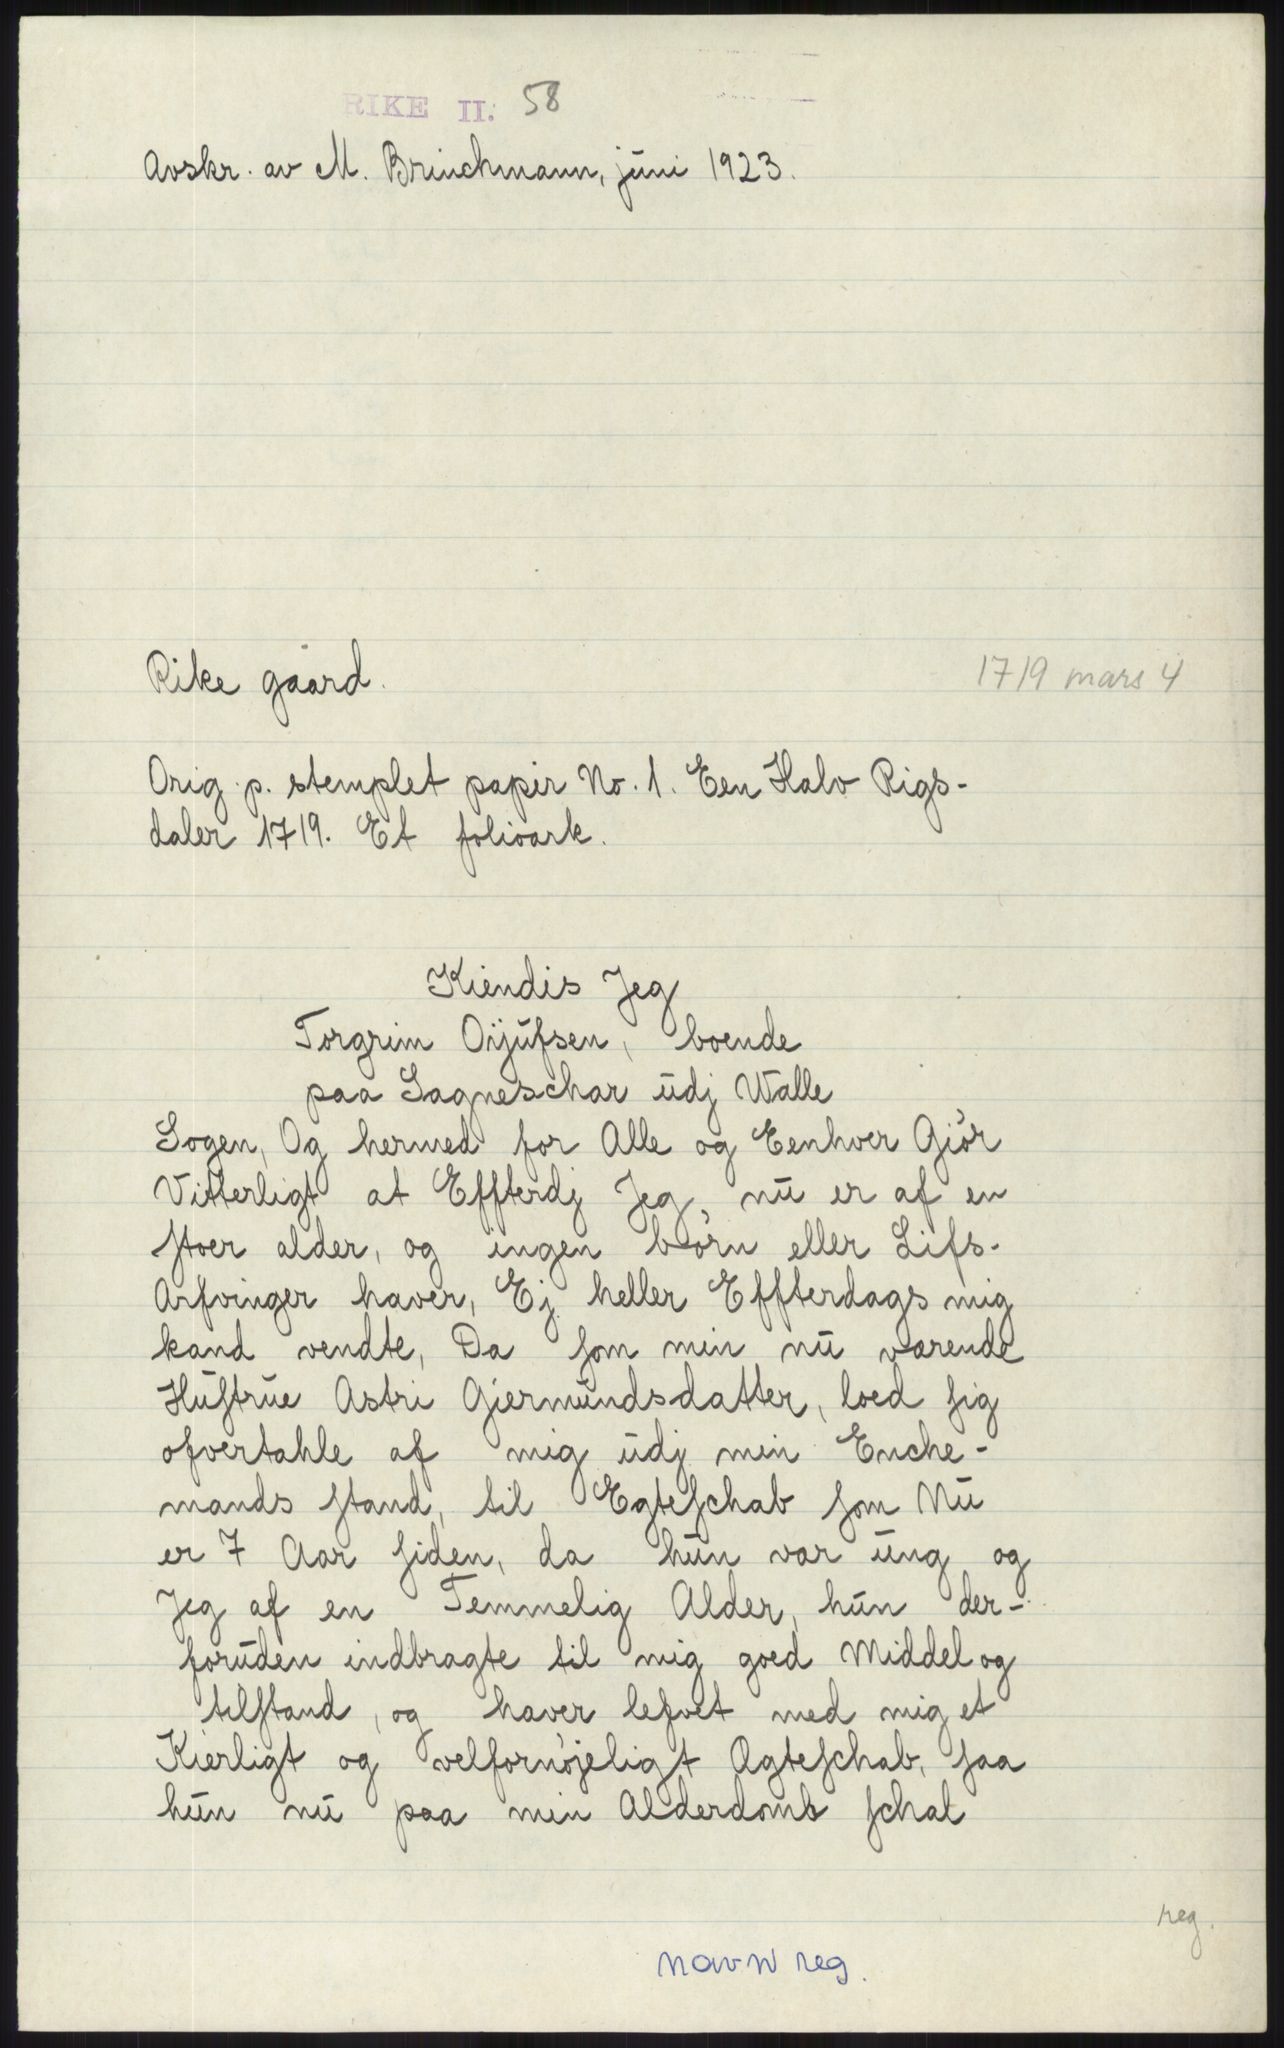 RIKE II. 58
Avskr. av M. Brinchmann, juni 1923.
Rike gaard.
1719 mars 4
Orig. p. stemplet papir No. 1. Een Halv Rigs-
daler 1719. Et folioark.
Kiendis Jeg
Torgrim Oijufsen, boende
paa Sagneschar udj Walle
Sogen, Og hermed for Alle og Eenhver Giör
Vitterligt at Effterdj Jeg, nu er af en
stoer alder, og ingen börn eller Lifs-
Arfvinger haver, Ej heller Effterdags mig
kand vendte, Da som min nu værende
Hustrue Astri Giermundsdatter, loed sig
ofvertahle af mig udj min Enche-
mands stand, til Egteschab som Nu
er 7 Aar siden, da hun var ung og
Jeg af en Temmelig Alder, hun der-
foruden indbragte til mig goed Middel og
tilstand, og haver lefvet med mig et
Kierligt og velfornøjeligt Ægteschab, saa
hun nu paa min Alderdomb schal
reg.
navn reg.